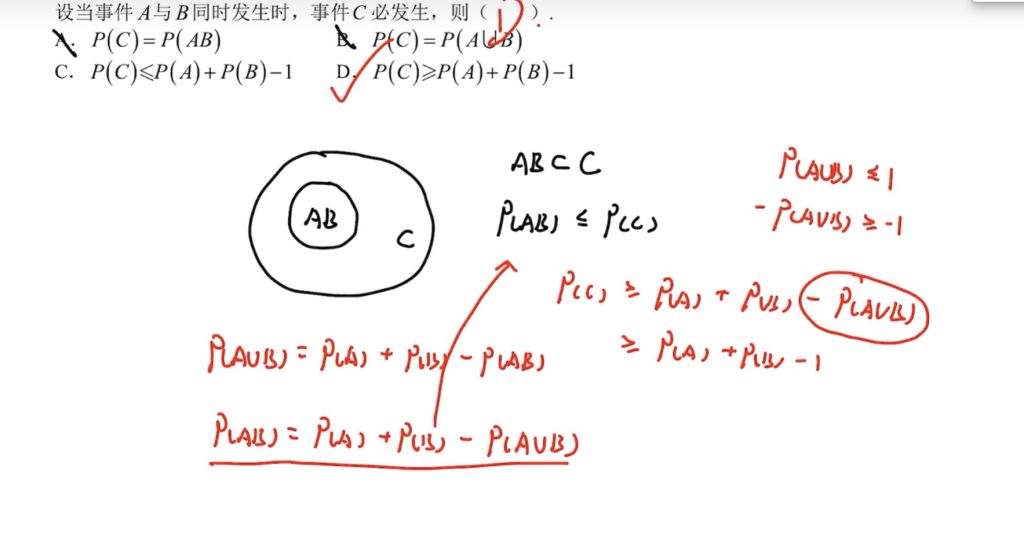 设当事件A与B同时发生时，事件C必发生，则（ D ）.
A. P(C)=P(AB)  B. P(C)=P(A∪B)
C. P(C)⩽P(A)+P(B)−1  D. P(C)⩾P(A)+P(B)−1
AB⊂C
P(A∪B) ≤ 1
AB
C
P(AB) ≤ P(C)
-P(A∪B) ≥ -1
P(C) ≥ P(A) + P(B) - P(A∪B)
≥ P(A) + P(B) - 1
P(A∪B) = P(A) + P(B) - P(AB)
P(AB) = P(A) + P(B) - P(A∪B)